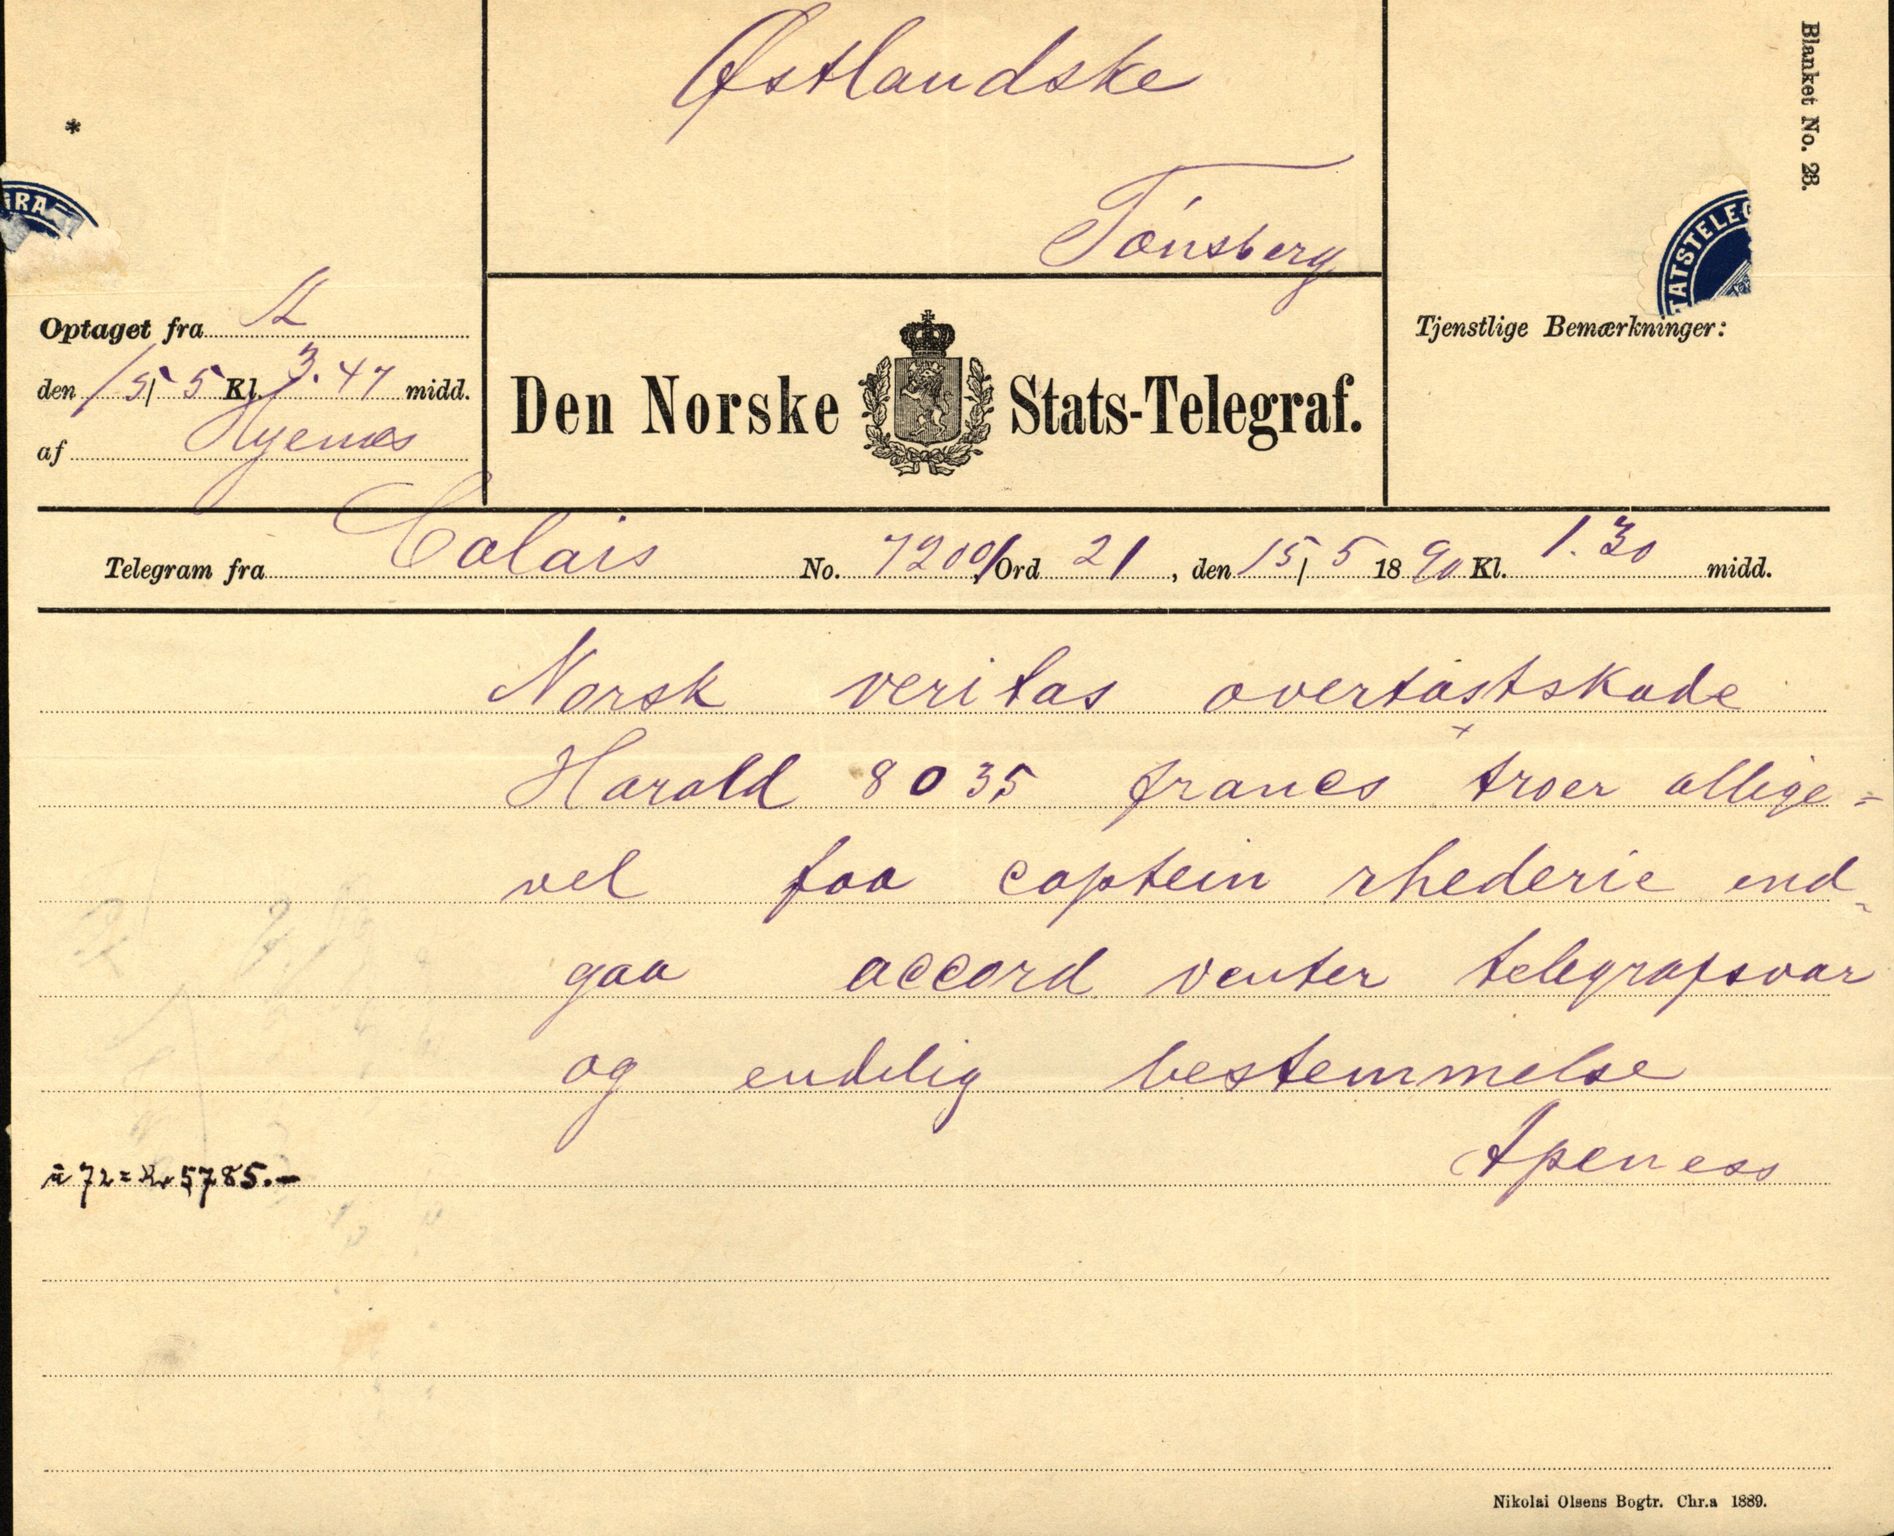 Østlandske
Tønsberg
Blanket No. 28.
*
GRA
TATSTELEG
Optaget fra
den 15/5 Kl. 3.47 midd.
af
Den Norske Stats-Telegraf.
Tjenstlige Bemærkninger:
Telegram fra Calais No. 7200/ Ord 21, den 15/5 1890 Kl. 1.30 midd.
Norsk veritas overtastskade
Harald 8035 francs troer allige=
vel faa captein rhederie end-
gaa accord venter telegrafsvar
og endelig bestemmelse
Apeness
à 72 = Kr 5785.-
Nikolai Olsens Bogtr. Chr.a 1889.